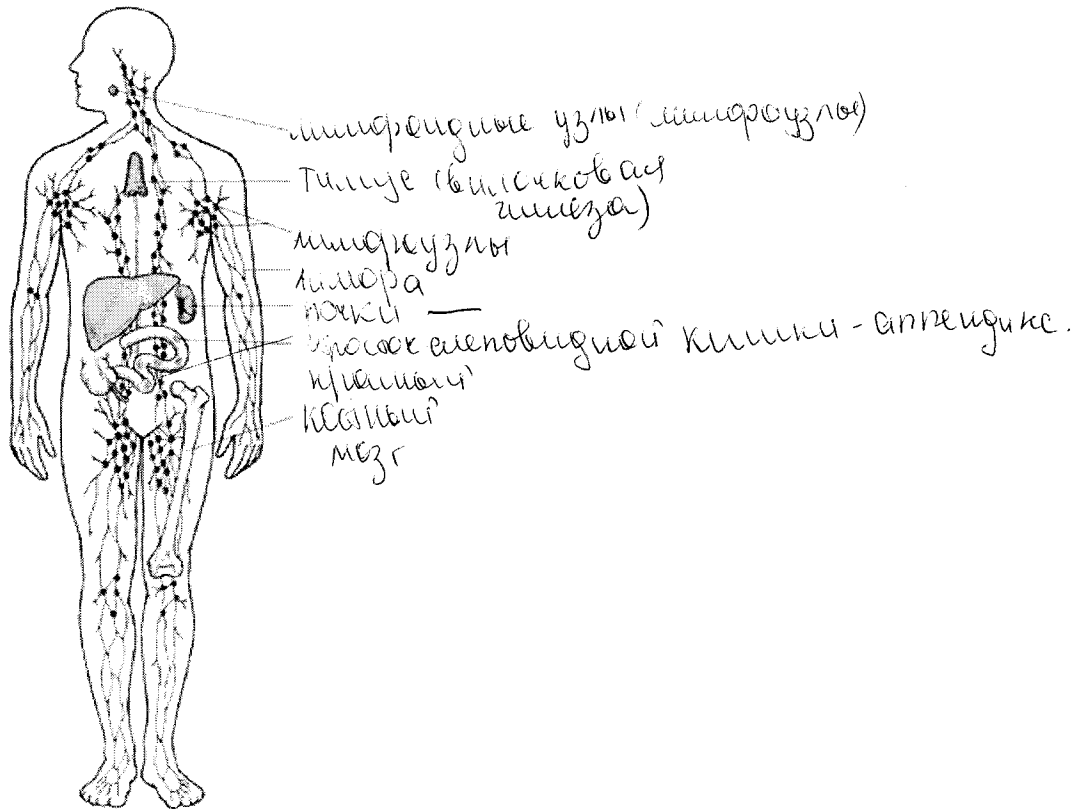 лимфоидные узлы (лимфоузлы)
тимус (вилочковая
железа)
лимфоузлы
лимфа
почки —
отросток слеповидной кишки - аппендикс.
красный
костный
мозг